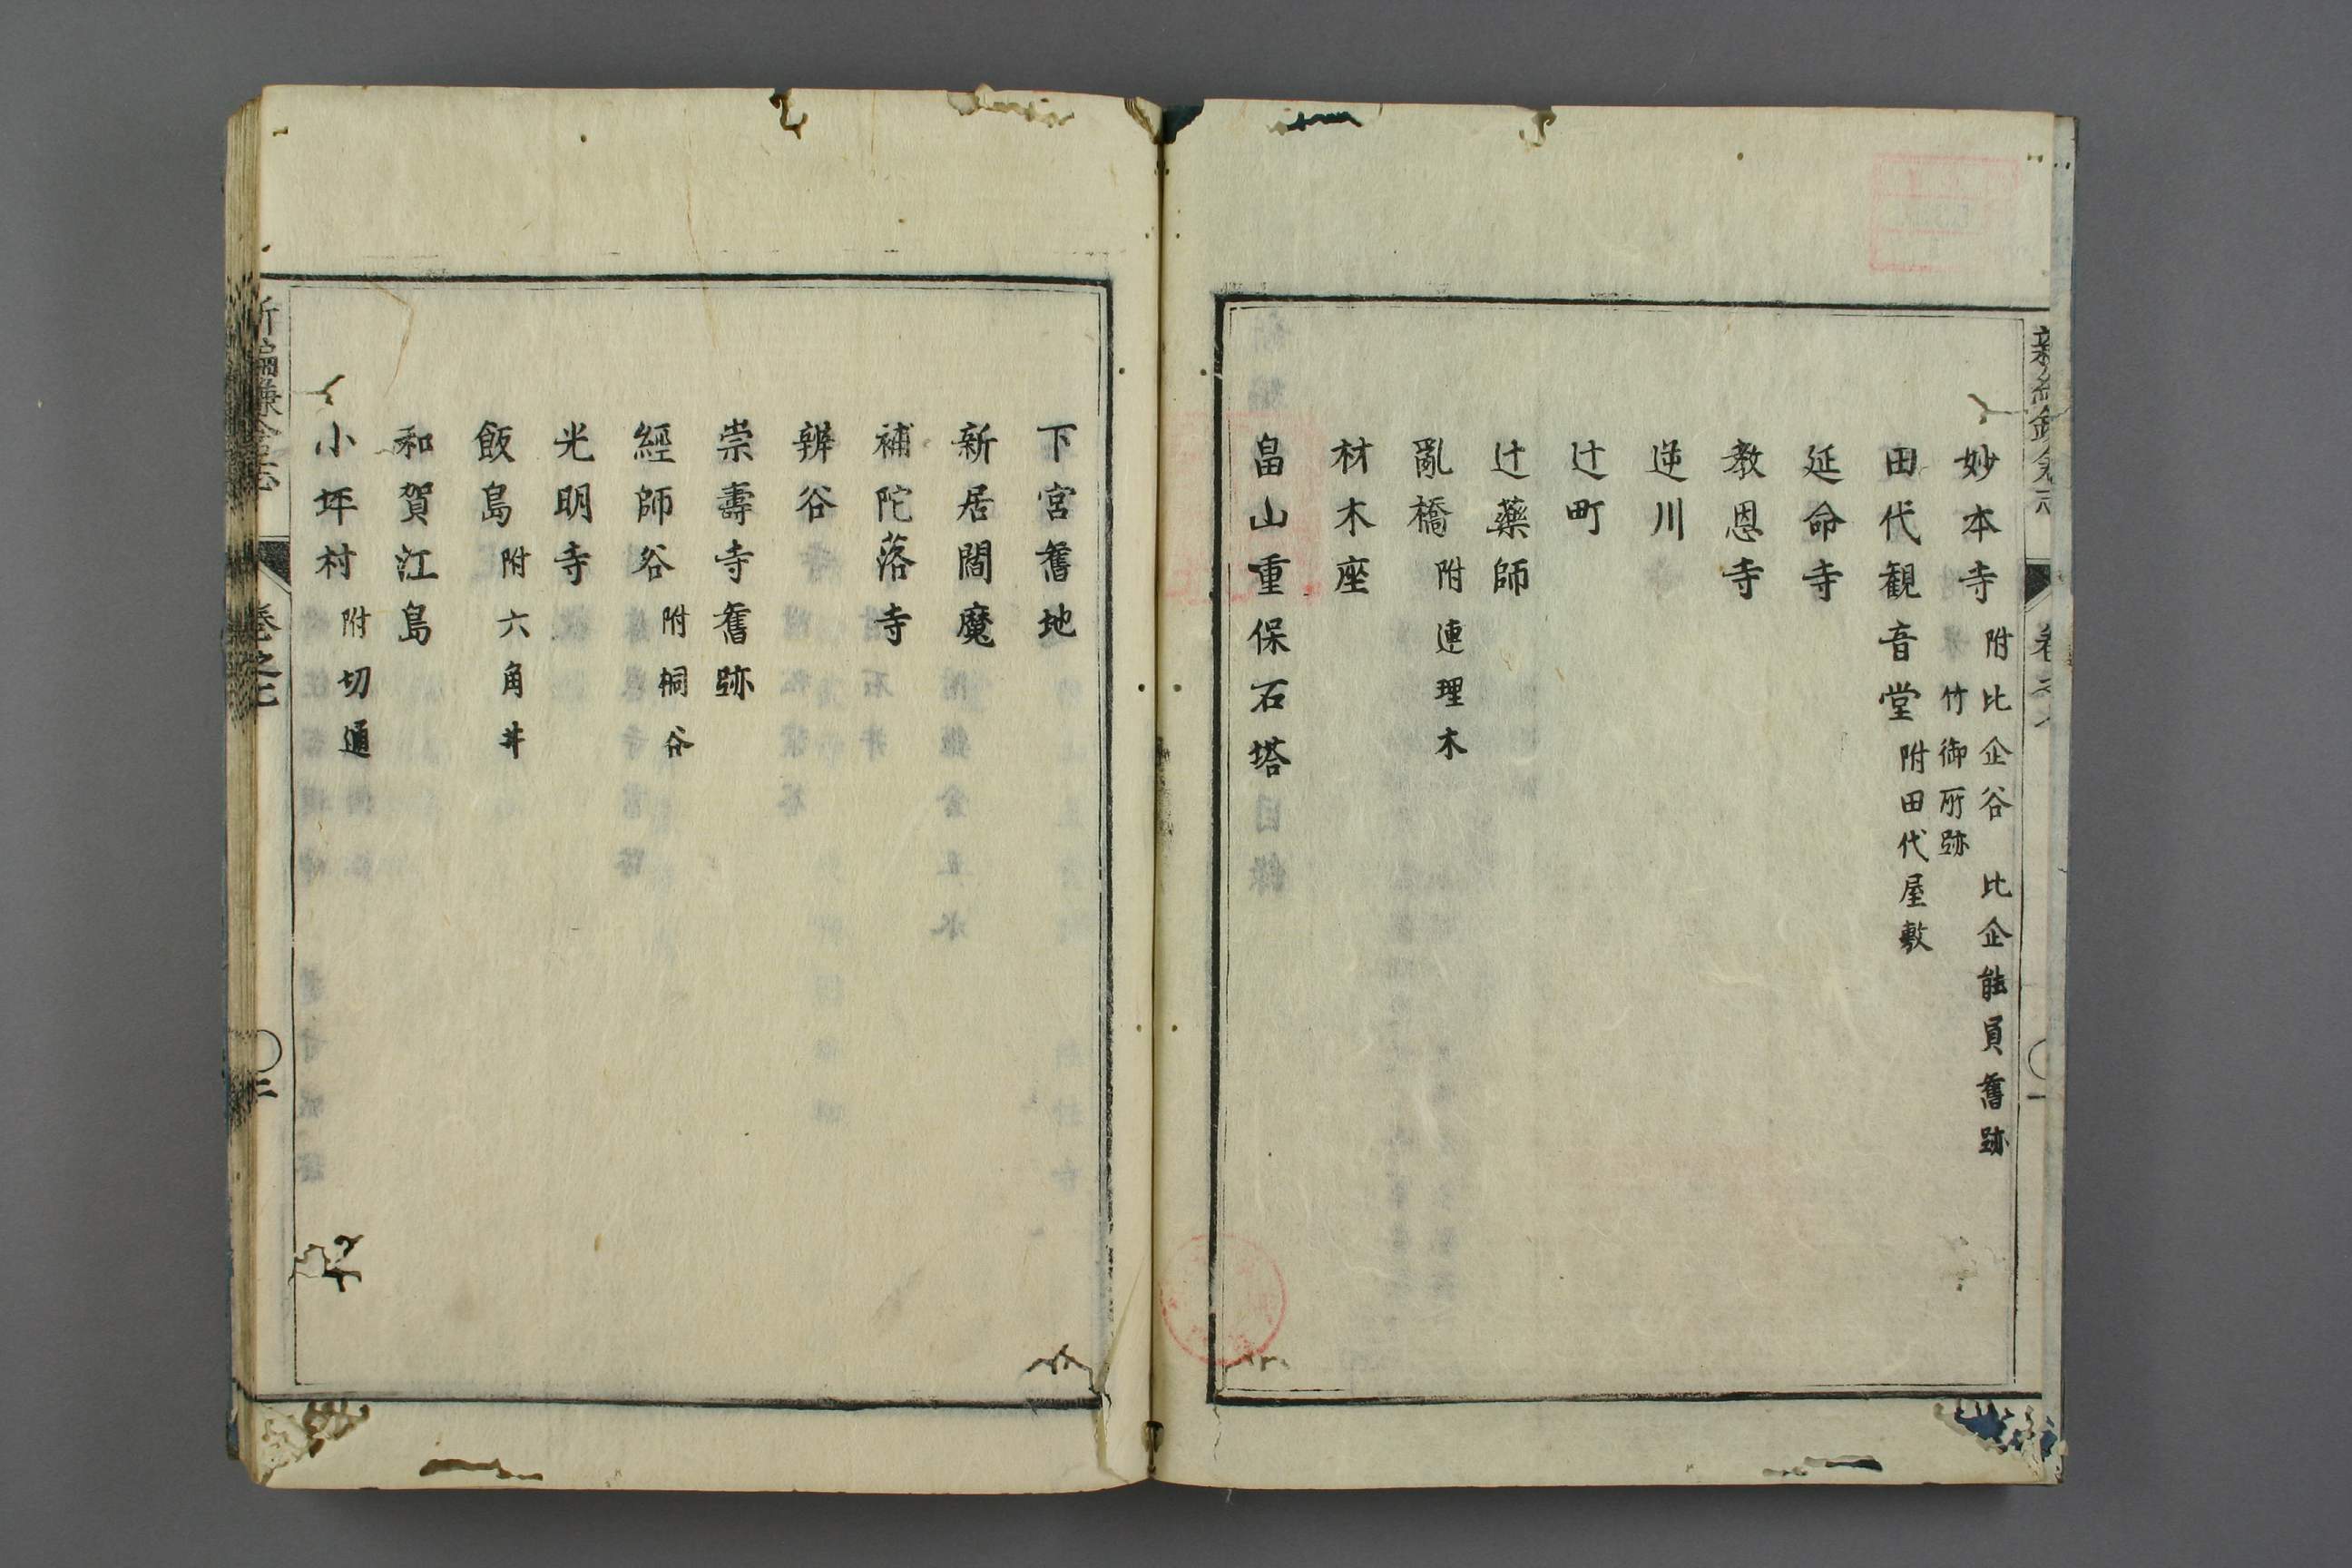 妙本寺 附比企谷 比企能員舊跡
竹御所跡
田代観音堂 附田代屋敷
延命寺
教恩寺
逆川
辻町
辻藥師
亂橋 附連理木
材木座
畠山重保石塔
下宮舊地
新居閻魔
補陀落寺
辨谷
崇壽寺舊跡
經師谷 附桐谷
光明寺
飯島 附六角井
和賀江島
小坪村 附切通
新編鎌倉志 卷之七 二